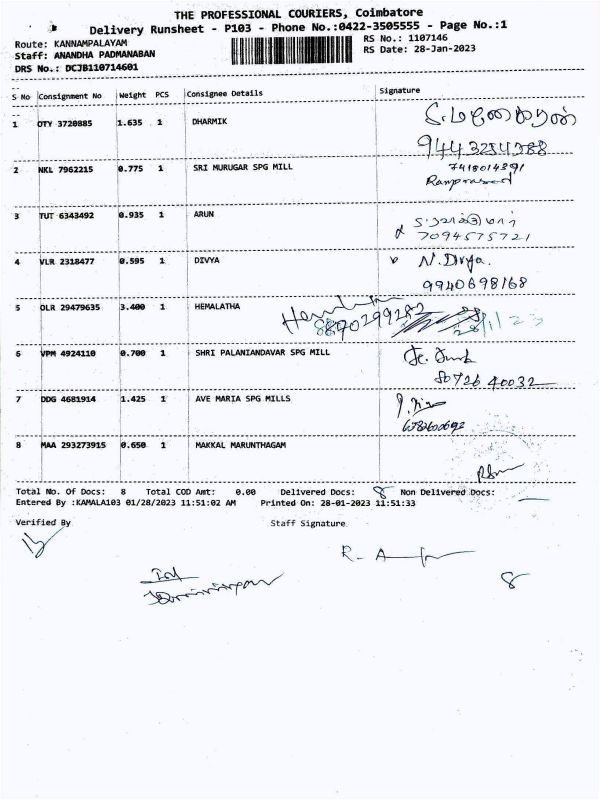 THE PROFESSIONAL COURIERS, Coimbatore
Delivery Runsheet - P103 - Phone No.:0422-3505555 - Page No.:1
Route: KANNAMPALAYAM
RS No.: 1107146
Staff: ANANDHA PADMANABAN
RS Date: 28-Jan-2023
DRS No.: DCJB110714601
S No Consignment No Weight PCS Consignee Details Signature
1 OTY 3720885 1.635 1 DHARMIK
2 NKL 7962215 0.775 1 SRI MURUGAR SPG MILL 7418014391
Ramprasad
3 TUT 6343492 0.935 1 ARUN
7094575721
4 VLR 2318477 0.595 1 DIVYA N.Divya.
9940698168
5 OLR 29479635 3.400 1 HEMALATHA
8870299282 28/1/23
6 VPM 4924110 0.700 1 SHRI PALANIANDAVAR SPG MILL
80726 40032
7 DDG 4681914 1.425 1 AVE MARIA SPG MILLS
8 MAA 293273915 0.650 1 MAKKAL MARUNTHAGAM
Total No. Of Docs: 8 Total COD Amt: 0.00 Delivered Docs: 8 Non Delivered Docs:
Entered By :KAMALA103 01/28/2023 11:51:02 AM Printed On: 28-01-2023 11:51:33
Verified By Staff Signature
8